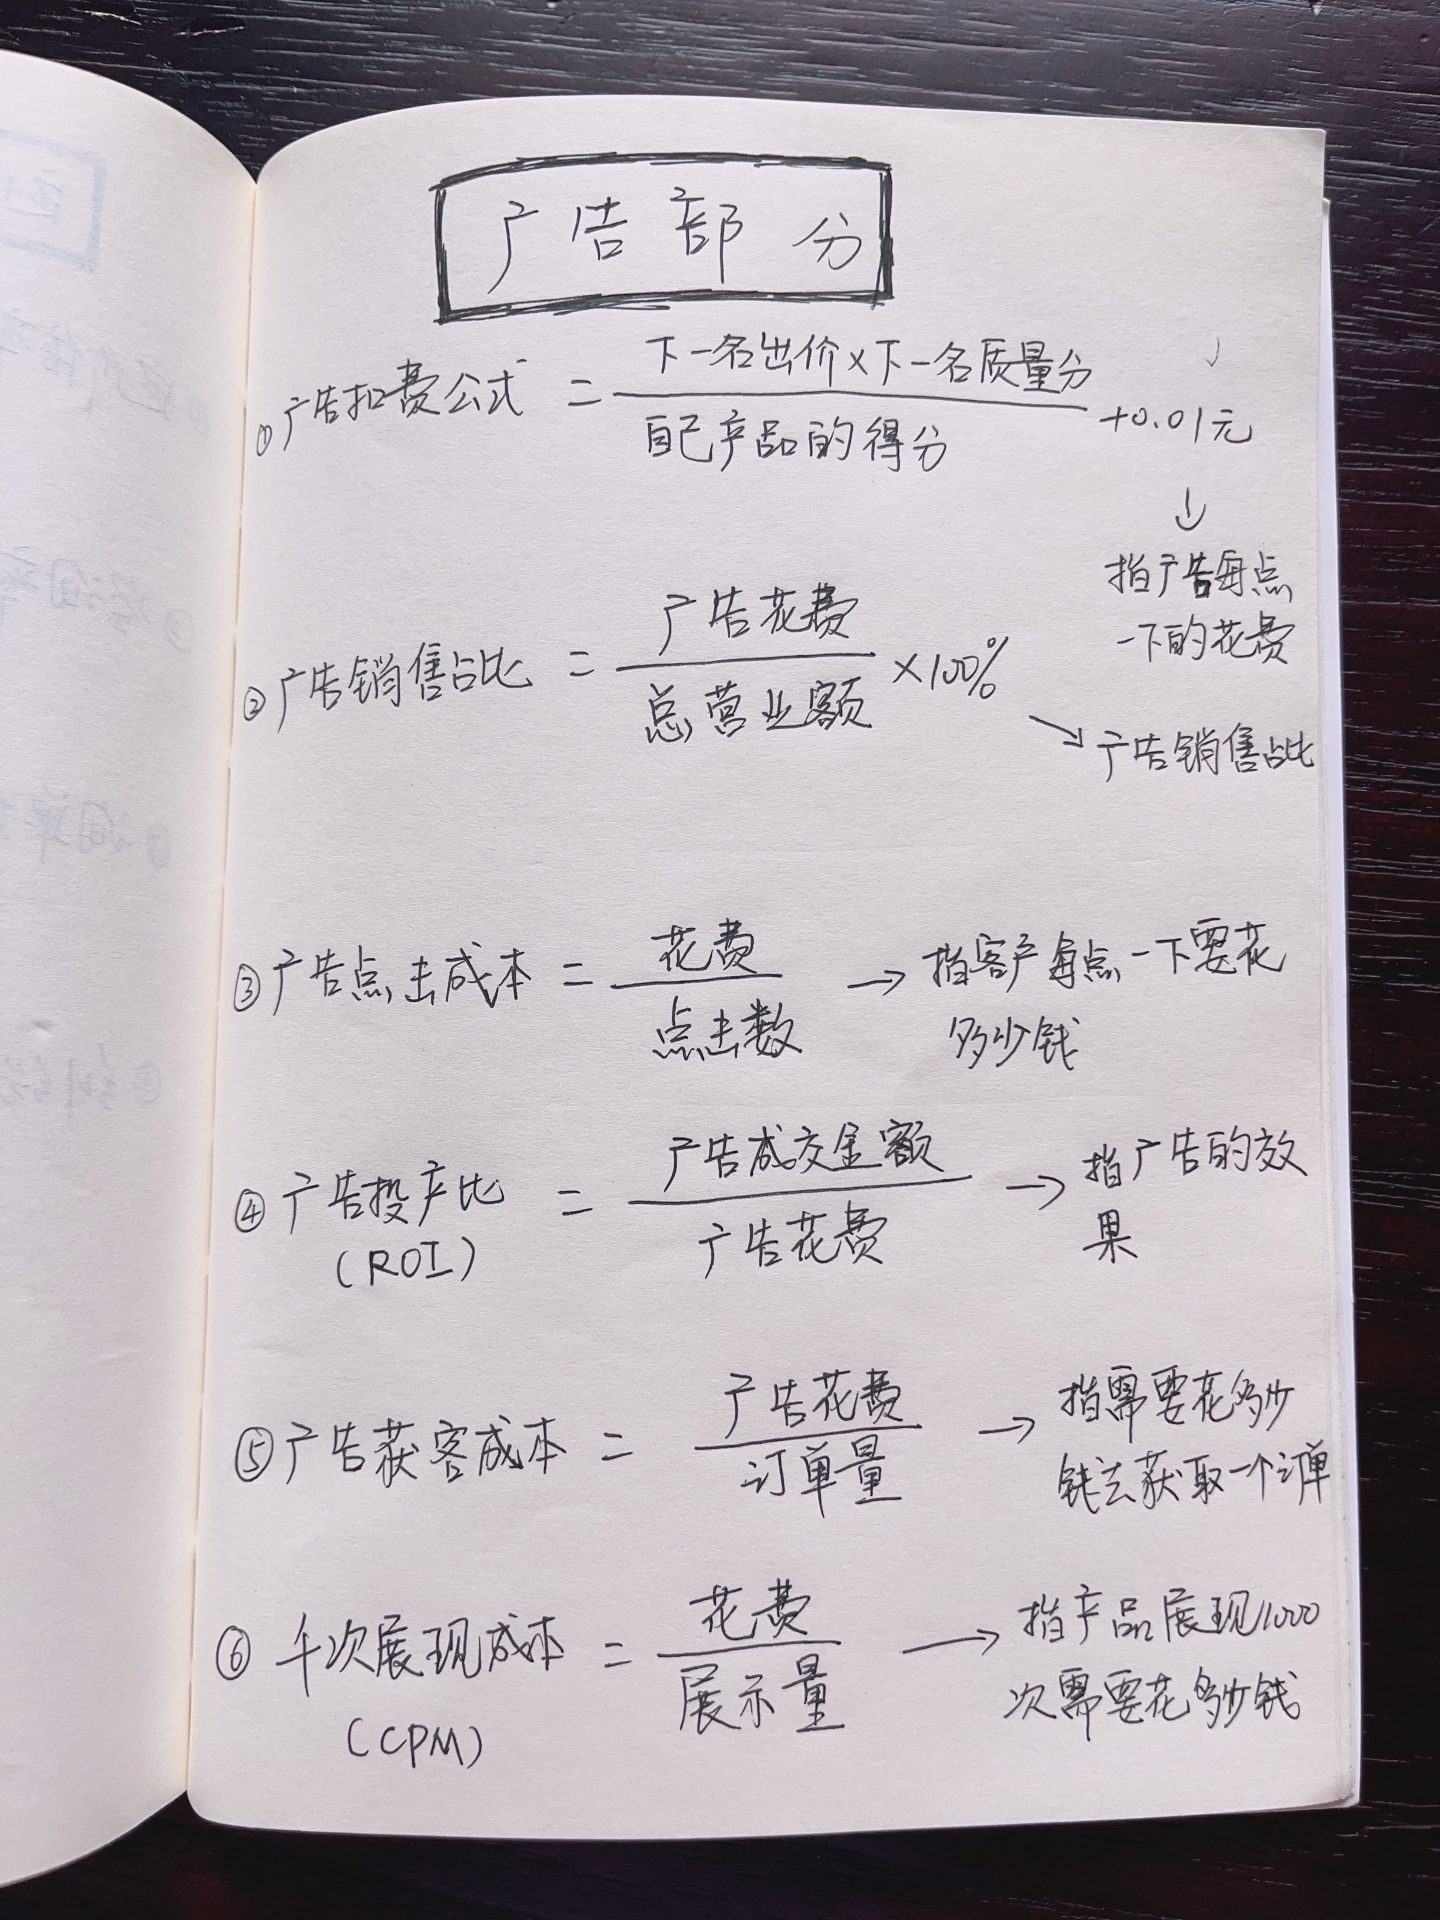 广告部分
①广告扣费公式 = 下一名出价×下一名质量分
自己产品的得分
+0.01元
↓
指广告每点
一下的花费
②广告销售占比 = 广告花费
总营业额
×100%
→广告销售占比
③广告点击成本 = 花费
点击数
→指客户每点一下要花
多少钱
④广告投产比 = 广告成交金额
(ROI)
广告花费
→指广告的效
果
⑤广告获客成本 = 广告花费
订单量
→指需要花多少
钱去获取一个订单
⑥千次展现成本 = 花费
(CPM)
展示量
→指产品展现1000
次需要花多少钱